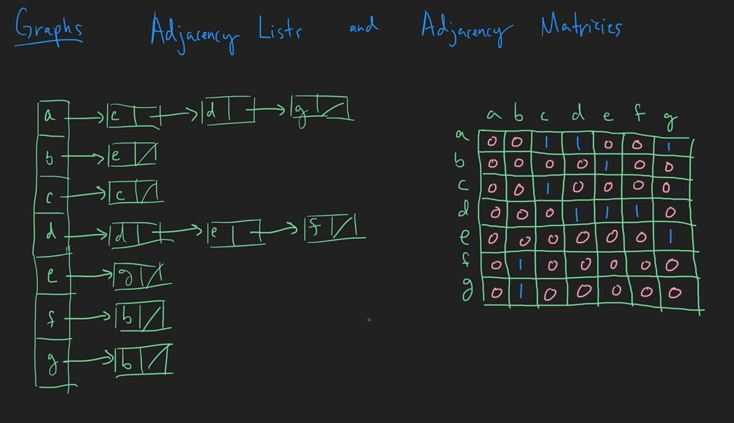 Graphs Adjacency Lists and Adjacency Matricies
a c d g
b e
c c
d d e f
e g
f b
g b
a b c d e f g
a 0 0 1 1 0 0 1
b 0 0 0 0 1 0 0
c 0 0 1 0 0 0 0
d 0 0 0 1 1 1 0
e 0 0 0 0 0 0 1
f 0 1 0 0 0 0 0
g 0 1 0 0 0 0 0